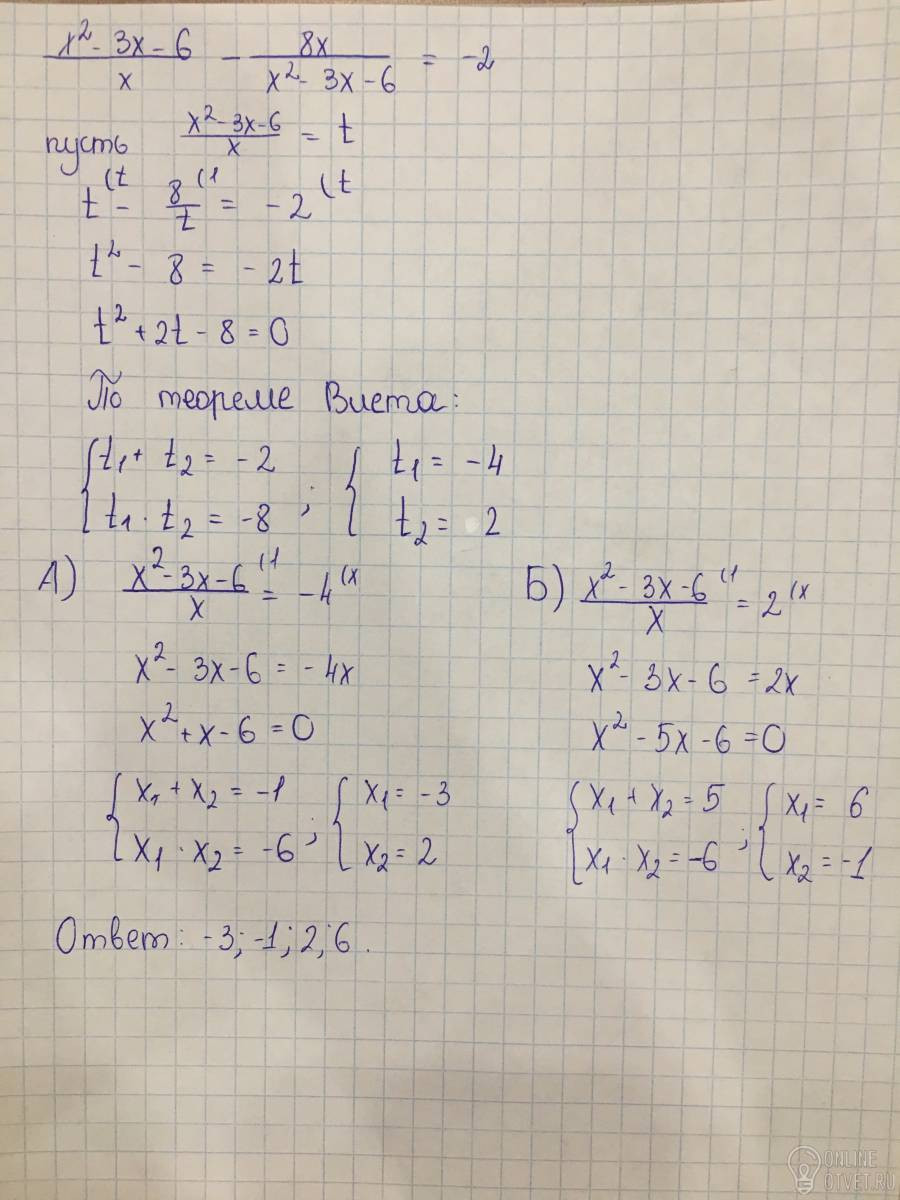 (x² - 3x - 6)/x - 8x/(x² - 3x - 6) = -2
пусть (x² - 3x - 6)/x = t
t⁽ᵗ - 8/t ⁽¹ = -2 ⁽ᵗ
t² - 8 = -2t
t² + 2t - 8 = 0
По теореме Виета:
{ t₁ + t₂ = -2 { t₁ = -4
{ t₁ · t₂ = -8 ; { t₂ = 2
А) (x² - 3x - 6)/x ⁽¹ = -4 ⁽ˣ
x² - 3x - 6 = -4x
x² + x - 6 = 0
{ x₁ + x₂ = -1 { x₁ = -3
{ x₁ · x₂ = -6 ; { x₂ = 2
Б) (x² - 3x - 6)/x ⁽¹ = 2 ⁽ˣ
x² - 3x - 6 = 2x
x² - 5x - 6 = 0
{ x₁ + x₂ = 5 { x₁ = 6
{ x₁ · x₂ = -6 ; { x₂ = -1
Ответ: -3; -1; 2; 6.
ONLINE
OTVET.RU